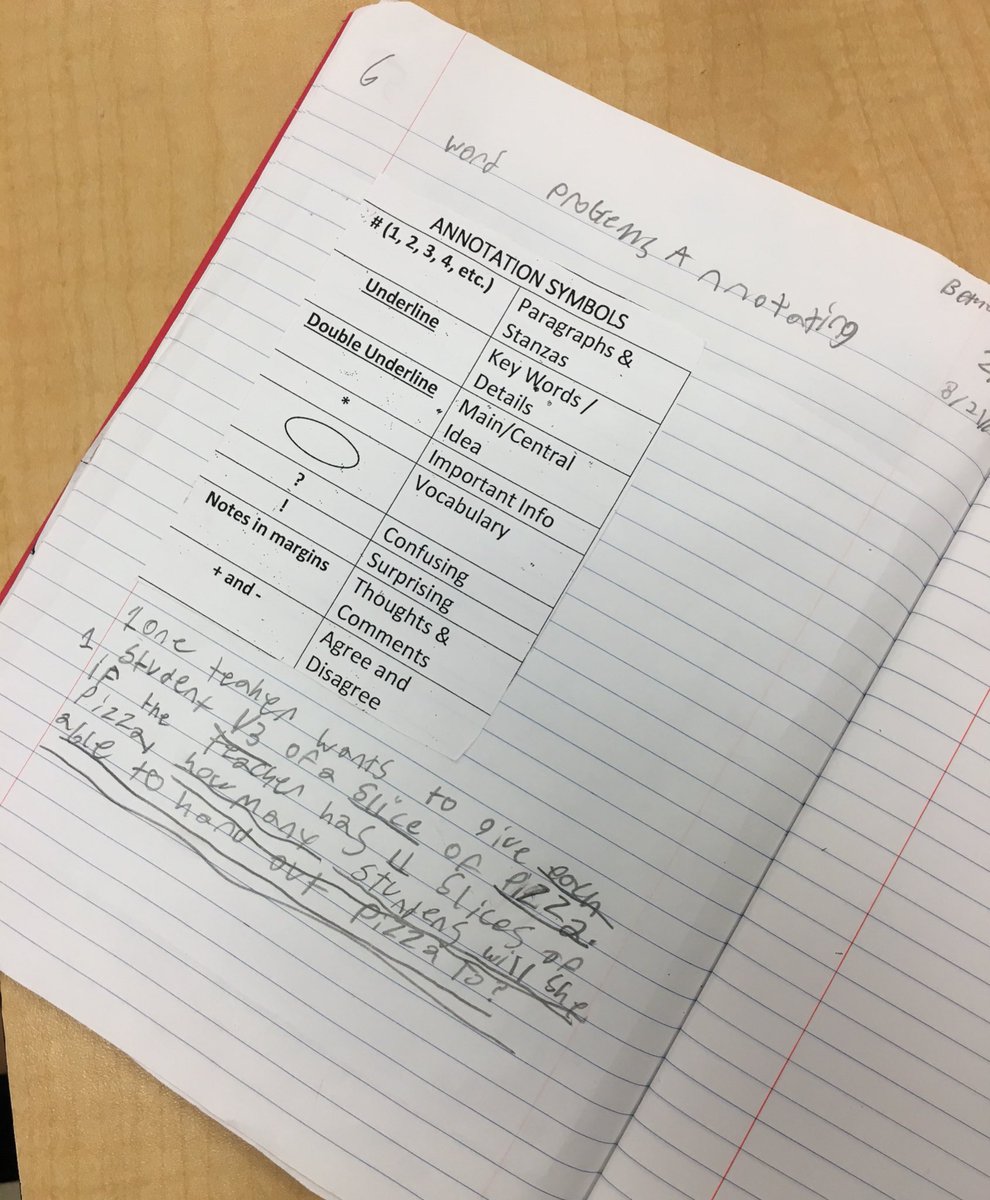 6
word problems Annotating
ANNOTATION SYMBOLS
# (1, 2, 3, 4, etc.) Paragraphs & Stanzas
Underline Key Words / Details
Double Underline Main/Central Idea
* Important Info
Vocabulary
? Confusing
! Surprising
Notes in margins Thoughts & Comments
+ and - Agree and Disagree
1 teaher wants to give each
student 1/3 of a slice of pizza.
If the teacher has 4 slices of
pizza, how many students will she
able to hand out pizza to?